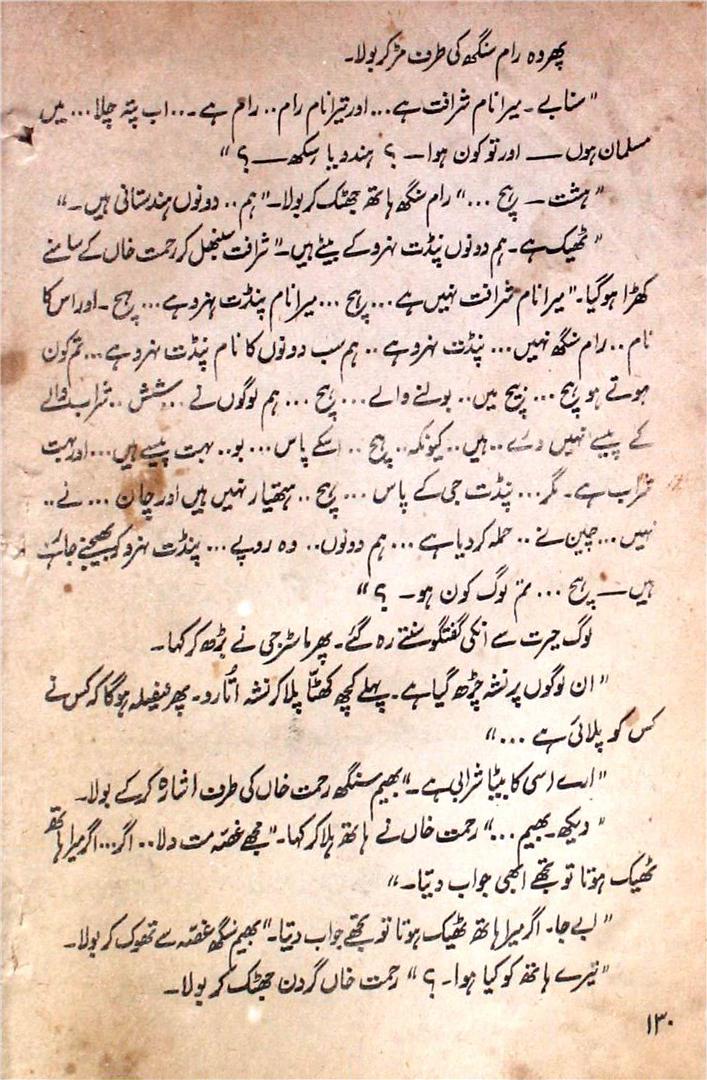 پھر وہ رام سنگھ کی طرف مڑ کر بولا۔
"سنابے۔ میرا نام شرافت ہے... اور تیرا نام رام.. رام ہے... اب پتہ چلا... میں
مسلمان ہوں — اور تو کون ہوا — ؟ ہندو یا سکھ — ؟"
"ہشت — ہچ ..." رام سنگھ ہاتھ جھٹک کر بولا۔ "ہم .. دونوں ہندستانی ہیں۔"
"ٹھیک ہے۔ ہم دونوں پنڈت نہرو کے بیٹے ہیں۔" شرافت سنبھل کر رحمت خاں کے سامنے
کھڑا ہو گیا۔ "میرا نام شرافت نہیں ہے... ہچ ... میرا نام پنڈت نہرو ہے... ہچ۔ اور اس کا
نام .. رام سنگھ نہیں... پنڈت نہرو ہے .. ہم سب دونوں کا نام پنڈت نہرو ہے... تم کون
ہوتے ہو ہچ ... بیچ میں.. بولنے والے... ہچ ... ہم لوگوں نے ... شش .. شراب والے
کے پیسے نہیں دئے .. ہیں.. کیونکہ.. ہچ .. اسکے پاس ... بو.. بہت پیسے ہیں... اور بہت
شراب ہے۔ مگر... پنڈت جی کے پاس ... ہچ .. ہتھیار نہیں ہیں اور چان ... نے ..
نہیں... چین نے .. حملہ کر دیا ہے ... ہم دونوں.. وہ روپے... پنڈت نہرو کو بھیجنے جا رہے
ہیں — ہچ ... تم لوگ کون ہو — ؟"
لوگ حیرت سے انکی گفتگو سنتے رہ گئے۔ پھر ماسٹر جی نے بڑھ کر کہا۔
"ان لوگوں پر نشہ چڑھ گیا ہے۔ پہلے کچھ کھٹا پلا کر نشہ اتار دو۔ پھر فیصلہ ہو گا کہ کس نے
کس کو پلائی ہے ..."
"ارے اسی کا بیٹا شرابی ہے۔" بھیم سنگھ رحمت خاں کی طرف اشارہ کر کے بولا۔
"دیکھ۔ بھیم ..." رحمت خاں نے ہاتھ ہلا کر کہا۔ "مجھے غصّہ مت دلا.. اگر... اگر میرا ہاتھ
ٹھیک ہوتا تو تجھے ابھی جواب دیتا۔"
"ابے جا۔ اگر میرا ہاتھ ٹھیک ہوتا تو تجھے جواب دیتا۔" بھیم سنگھ غصّہ سے تھوک کر بولا۔
"تیرے ہاتھ کو کیا ہوا۔ ؟" رحمت خاں گردن جھٹک کر بولا۔
۱۳۰